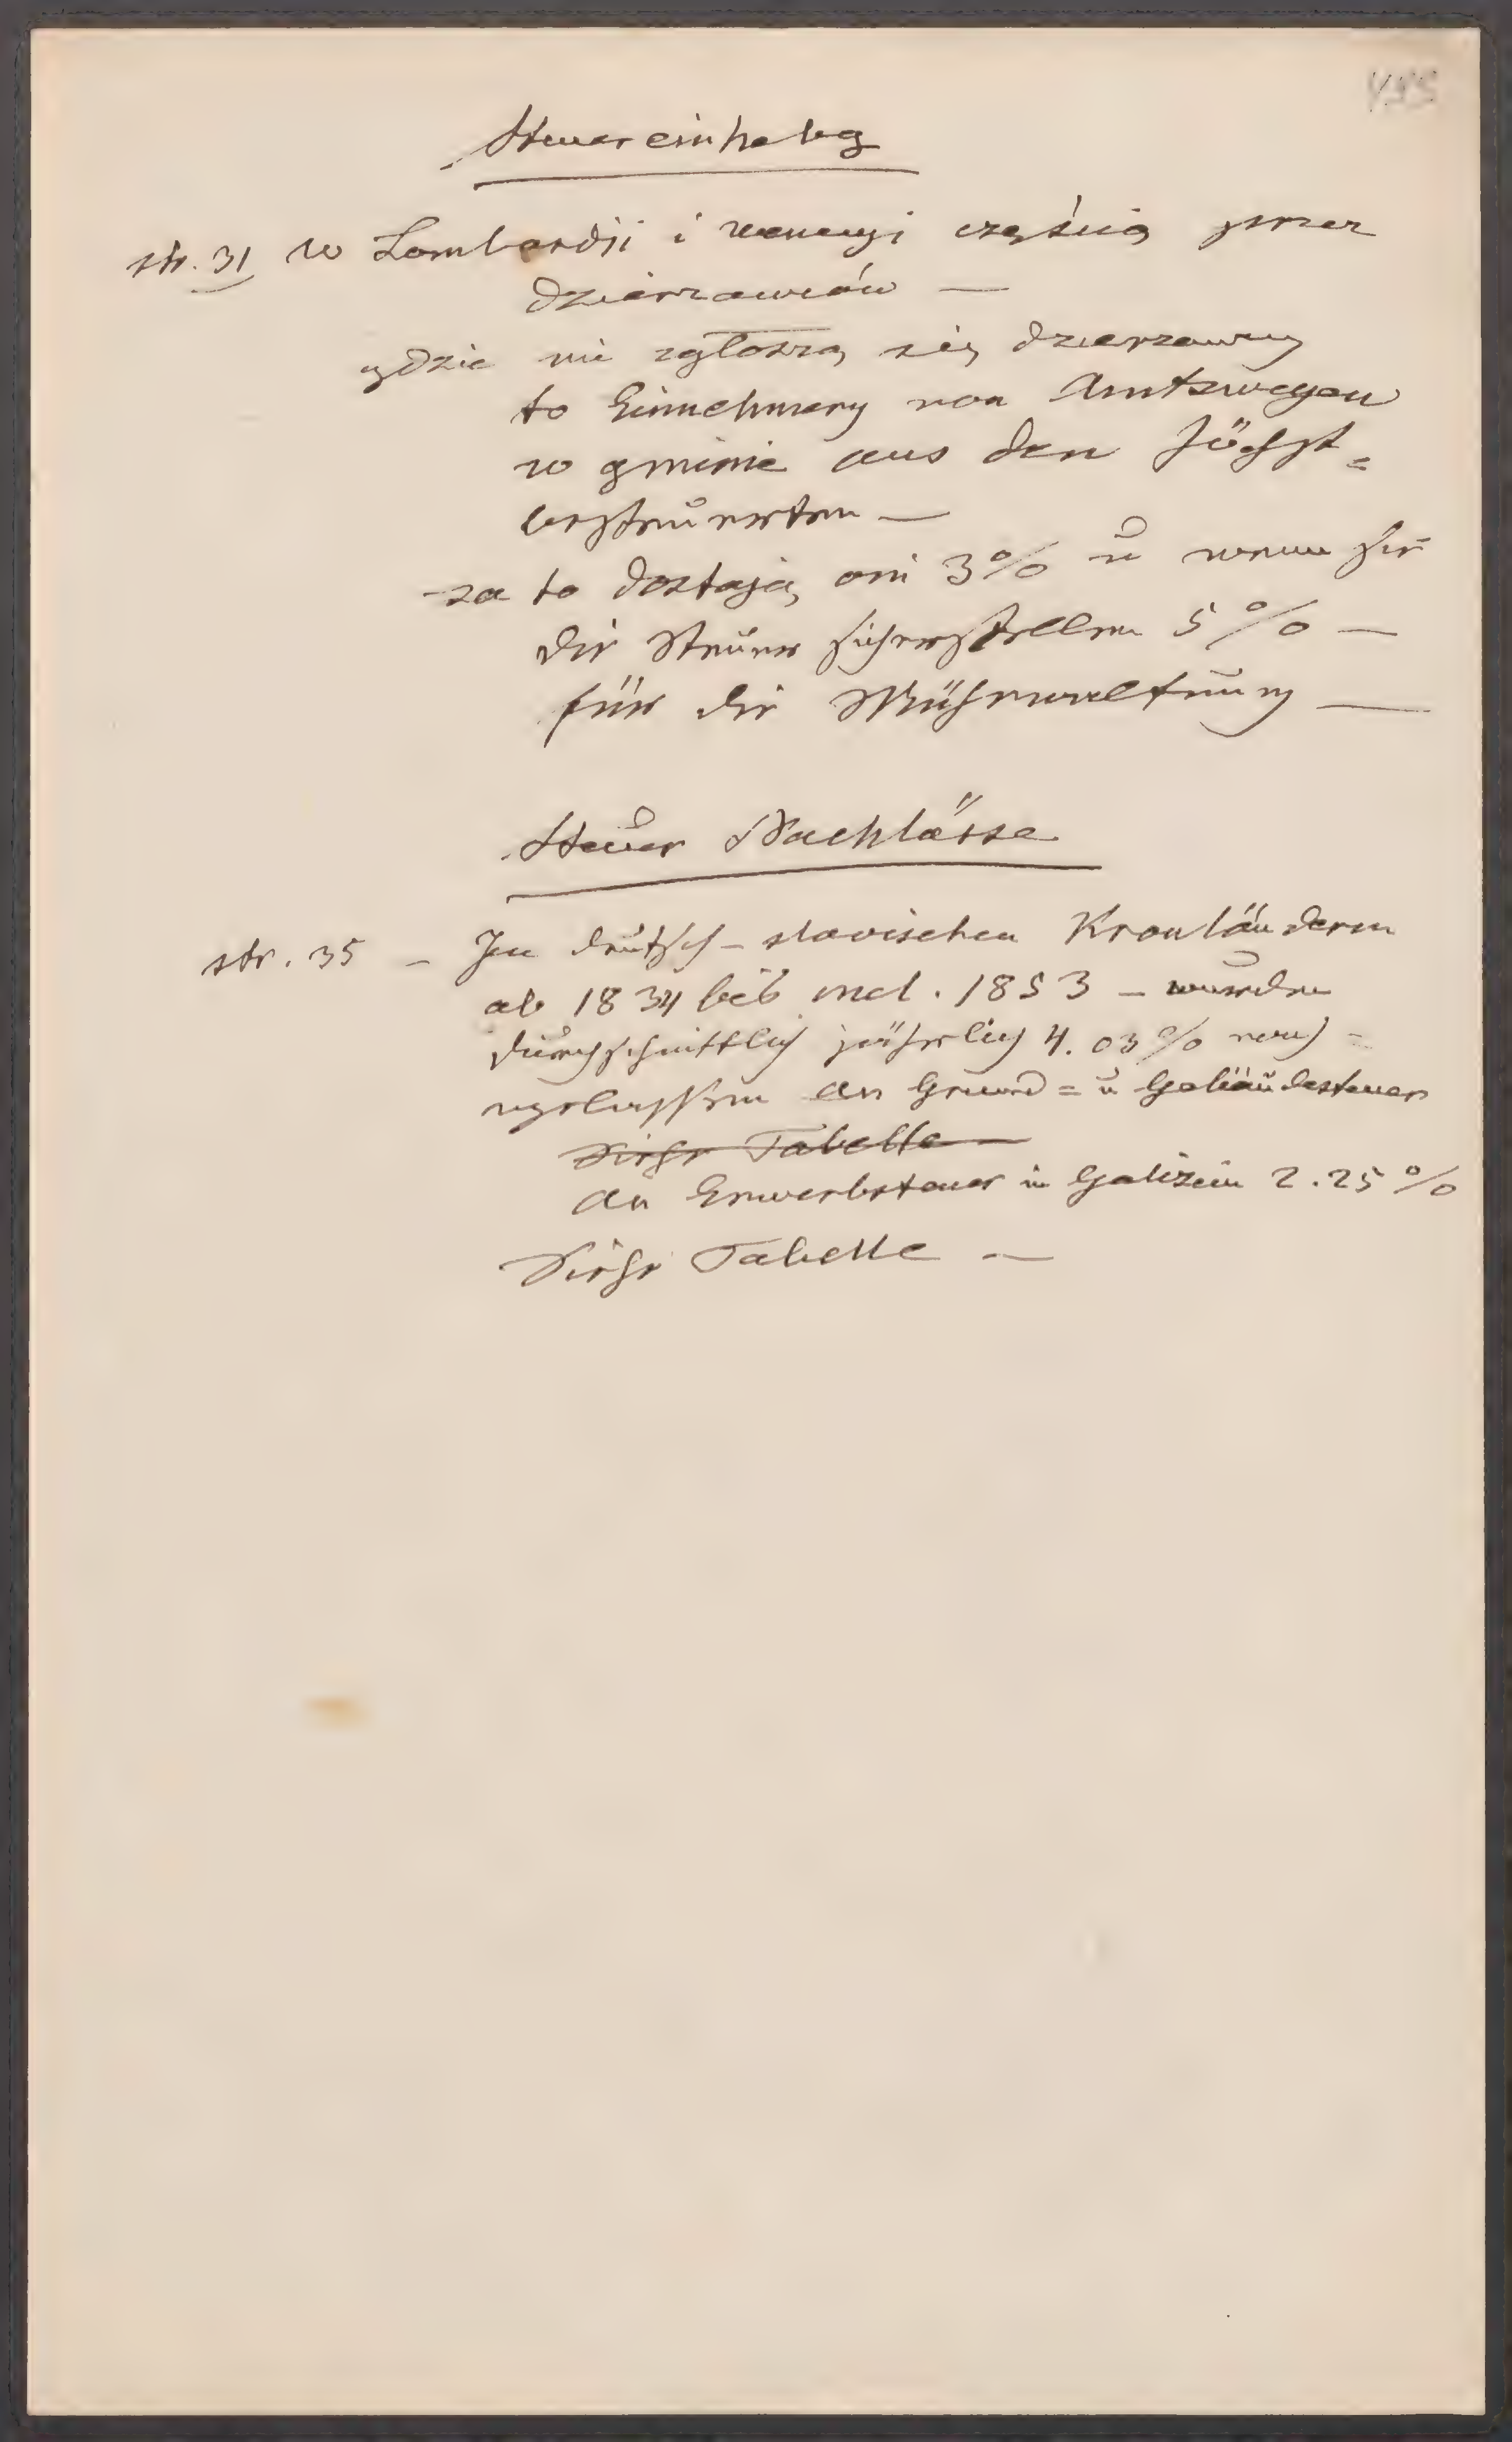 Steuereinhebg
str. 31 w Lombardji i wenecyi częścią przez
dzierzawców —
gdzie nie zgłoszą się dzierzawcy
to Einnehmery von Amtswegen
w gminie aus den Höchst=
besteuerten —
za to dostają oni 3% u wenn sie
die Steuer sicherstellen 5% —
für die Mühewaltung —
Steuer Nachlässe
str. 35 — In deutsch-slavischen Kronländern
ab 1834 bis incl. 1853 — wurden
durchschnittlich jährlich 4.03% nach=
gelassen an Grund= u Gebäudesteuer
Siehe Tabelle
an Erwerbsteuer in Galizien 2.25%
Siehe Tabelle —